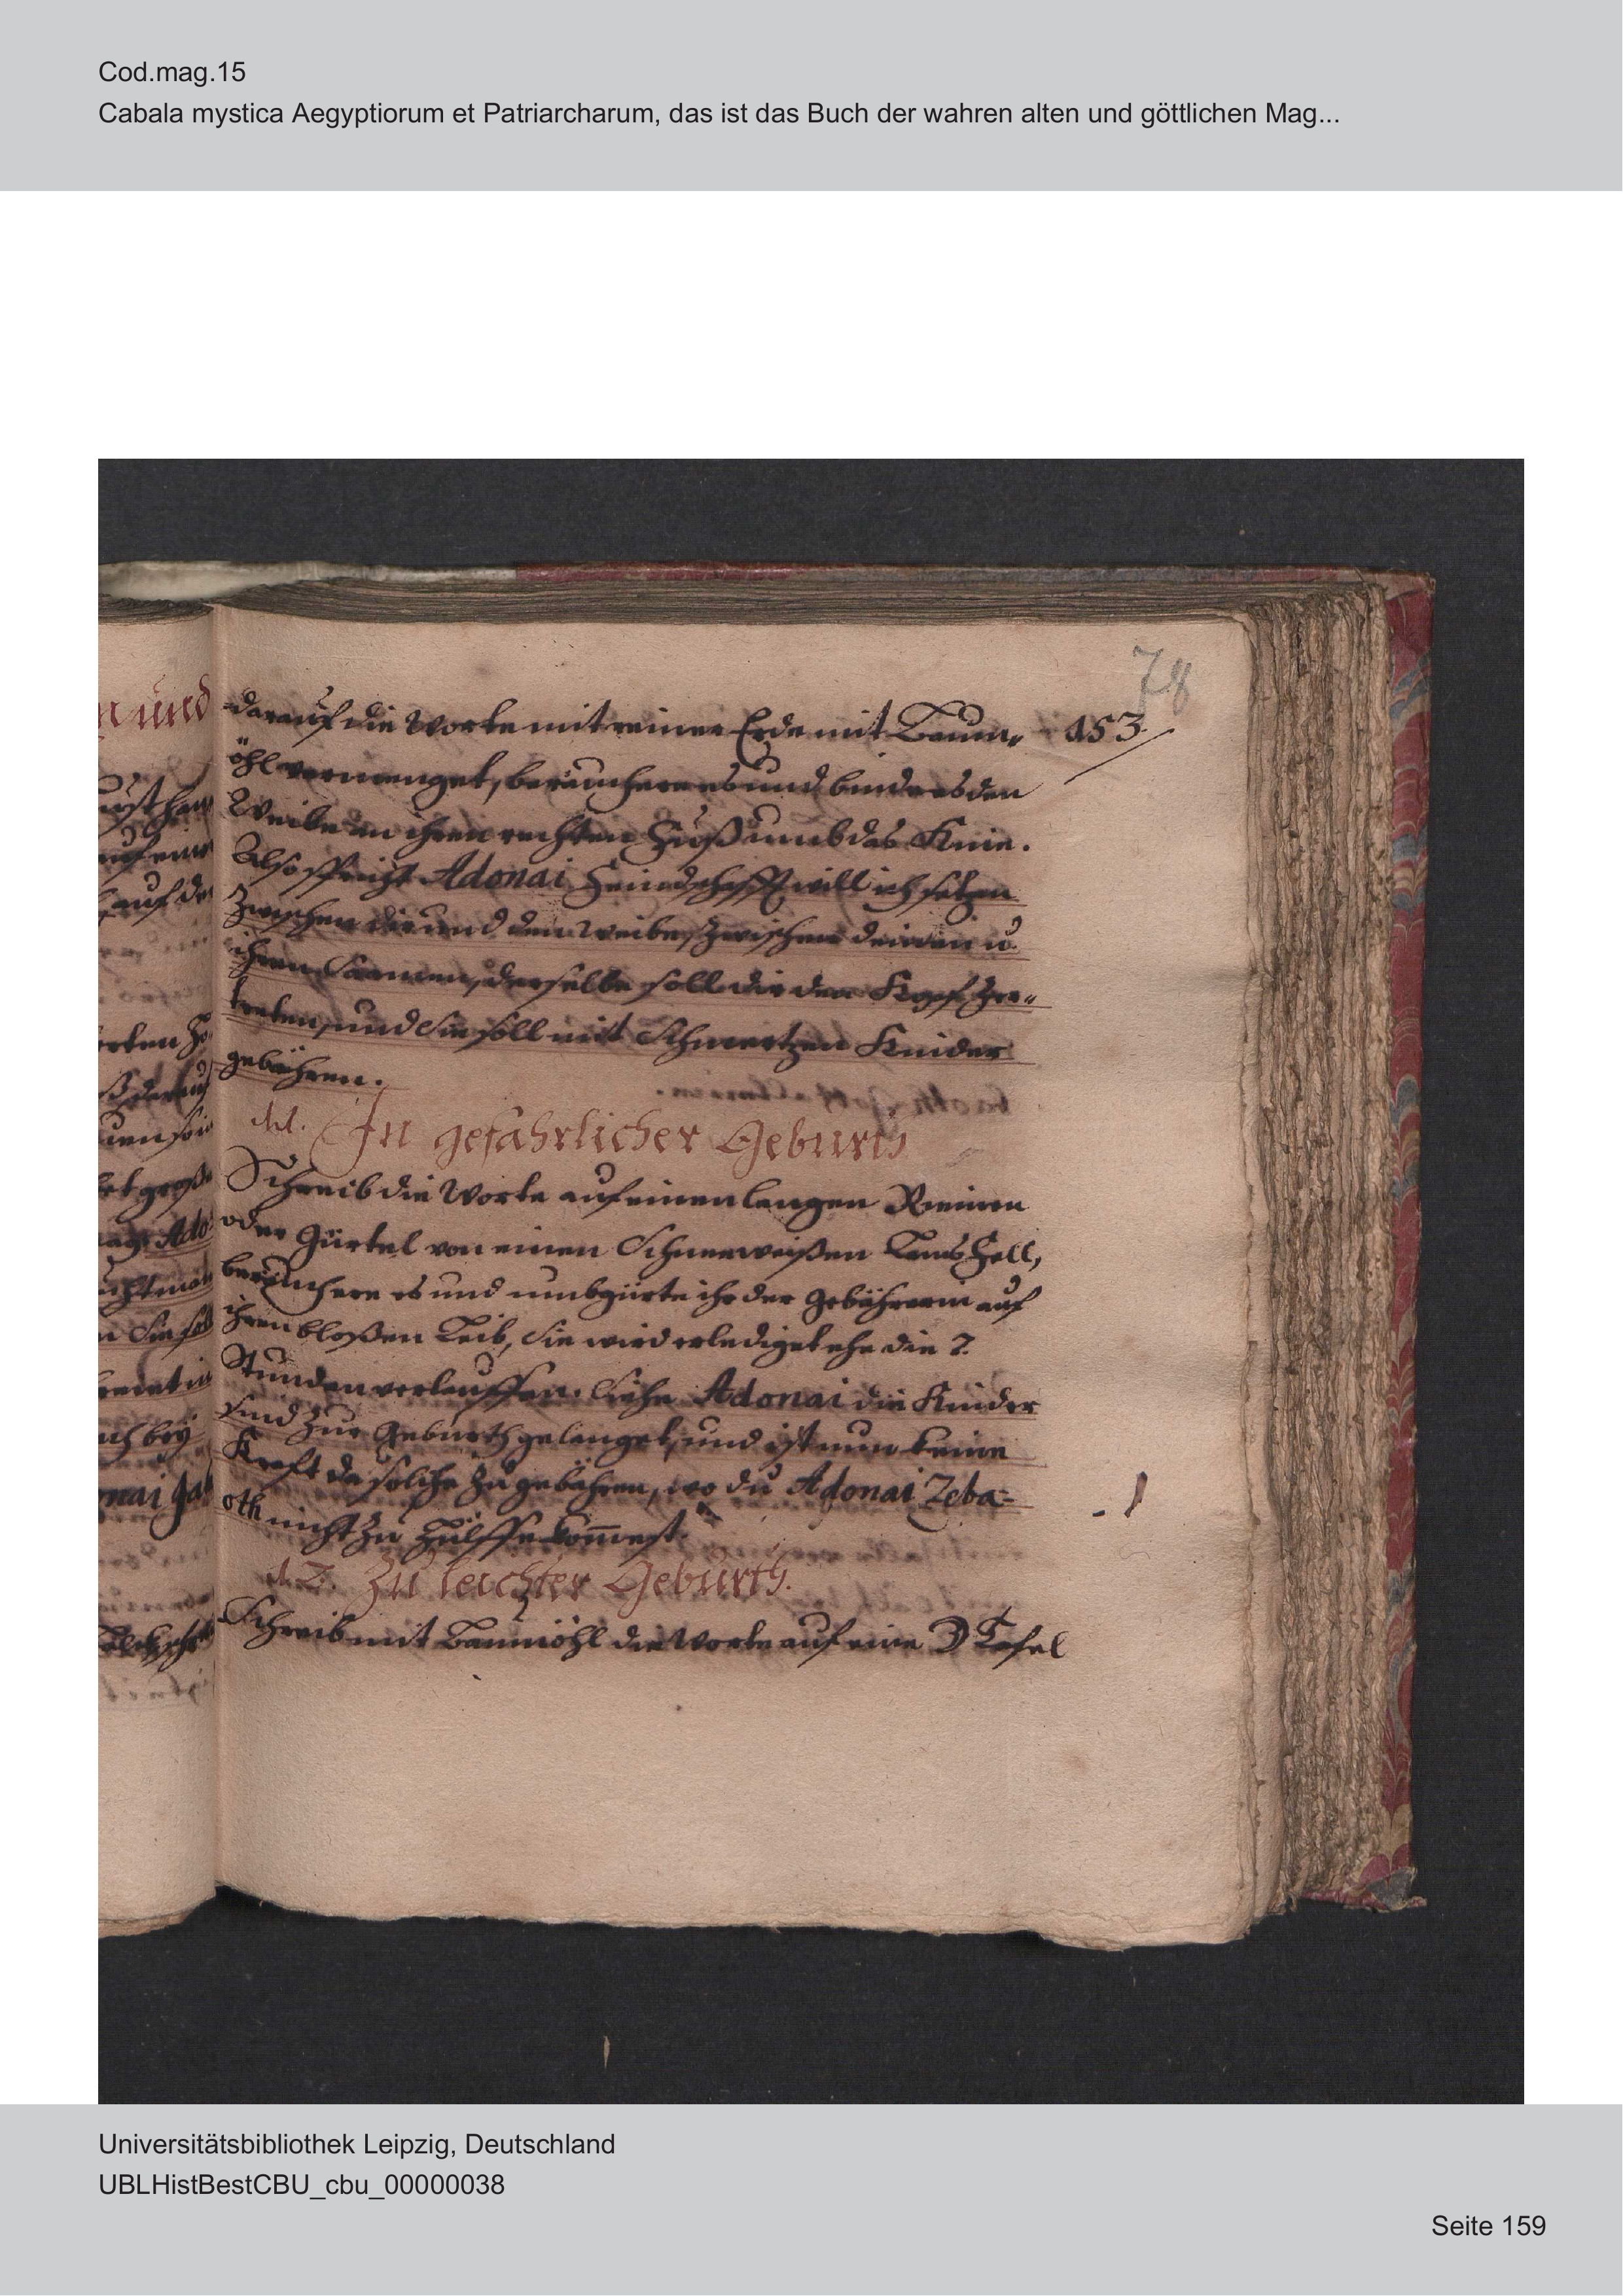 Cod.mag.15
Cabala mystica Aegyptiorum et Patriarcharum, das ist das Buch der wahren alten und göttlichen Mag...
78
darauf die Worte mit reiner Erde mit Baum- 153.
öhl vermenget, beräuchere es und binde es den
Weibe an ihren rechten Fuß umb das Knie.
Also spricht Adonai Feindschafft will ich setzen
zwischen dir und dem Weibe, zwischen deinen u.
ihren Saamen, derselbe soll dir den Kopf zer-
treten, und Sie soll mit Schmertzen Kinder
gebähren.
11. In gefährlicher Geburth
Schreib die Worte auf einen langen Riemen
oder Gürtel von einen Schneeweißen Lams Fell,
beräuchere es und umbgürte ihr der Gebährerin auf
ihren bloßen Leib, Sie wird erlediget ehe die 2.
Stunden verlauffen. Siehe Adonai die Kinder
sind zur Geburth gelanget, und ist nun keine
Kraft da solche zu gebähren, wo du Adonai Zeba-
oth nicht zu Hülffe kom̄est.
12. Zu leichter Geburth.
Schreib mit Baumöhl die Worte auf eine ☽ Tafel
Universitätsbibliothek Leipzig, Deutschland
UBLHistBestCBU_cbu_00000038
Seite 159